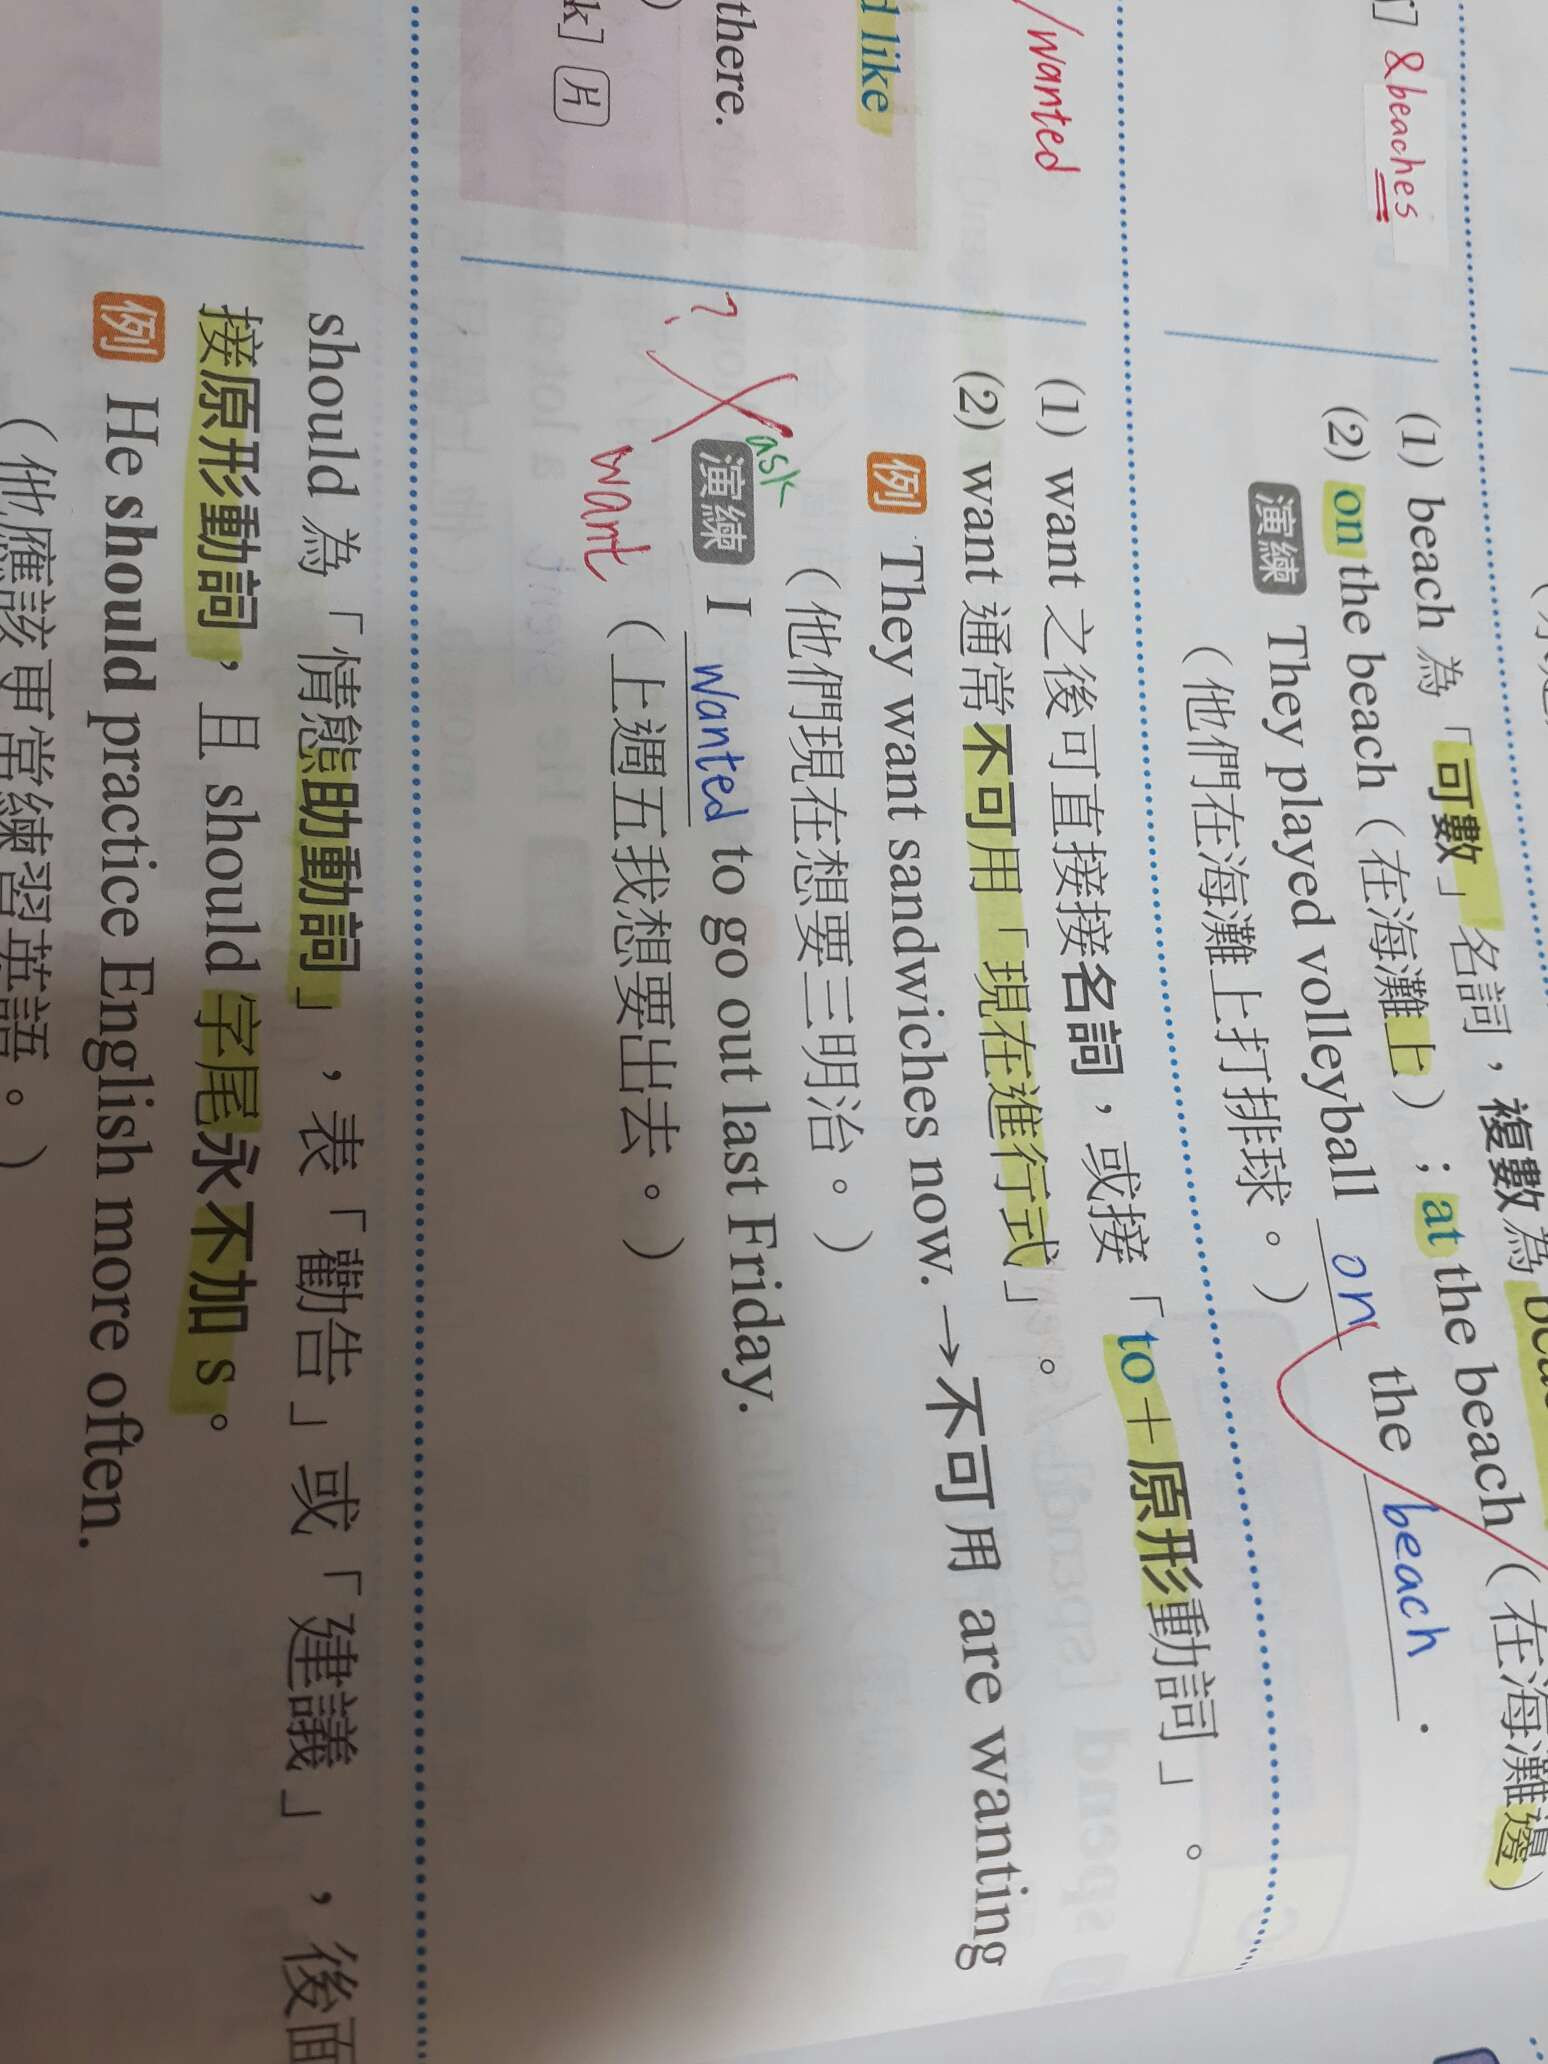 &beaches
(1) beach 為「可數」名詞，複數為
(2) on the beach（在海灘上）；at the beach（在海灘邊）
演練 They played volleyball on the beach.
（他們在海灘上打排球。）
/wanted
(1) want 之後可直接接名詞，或接「to＋原形動詞」。
(2) want 通常不可用「現在進行式」。
例 They want sandwiches now. → 不可用 are wanting
（他們現在想要三明治。）
like
there.
k] 片
? ask
演練 I wanted to go out last Friday.
want
（上週五我想要出去。）
should 為「情態助動詞」，表「勸告」或「建議」，後面
接原形動詞，且 should 字尾永不加 s。
例 He should practice English more often.
（他應該更常練習英語。）